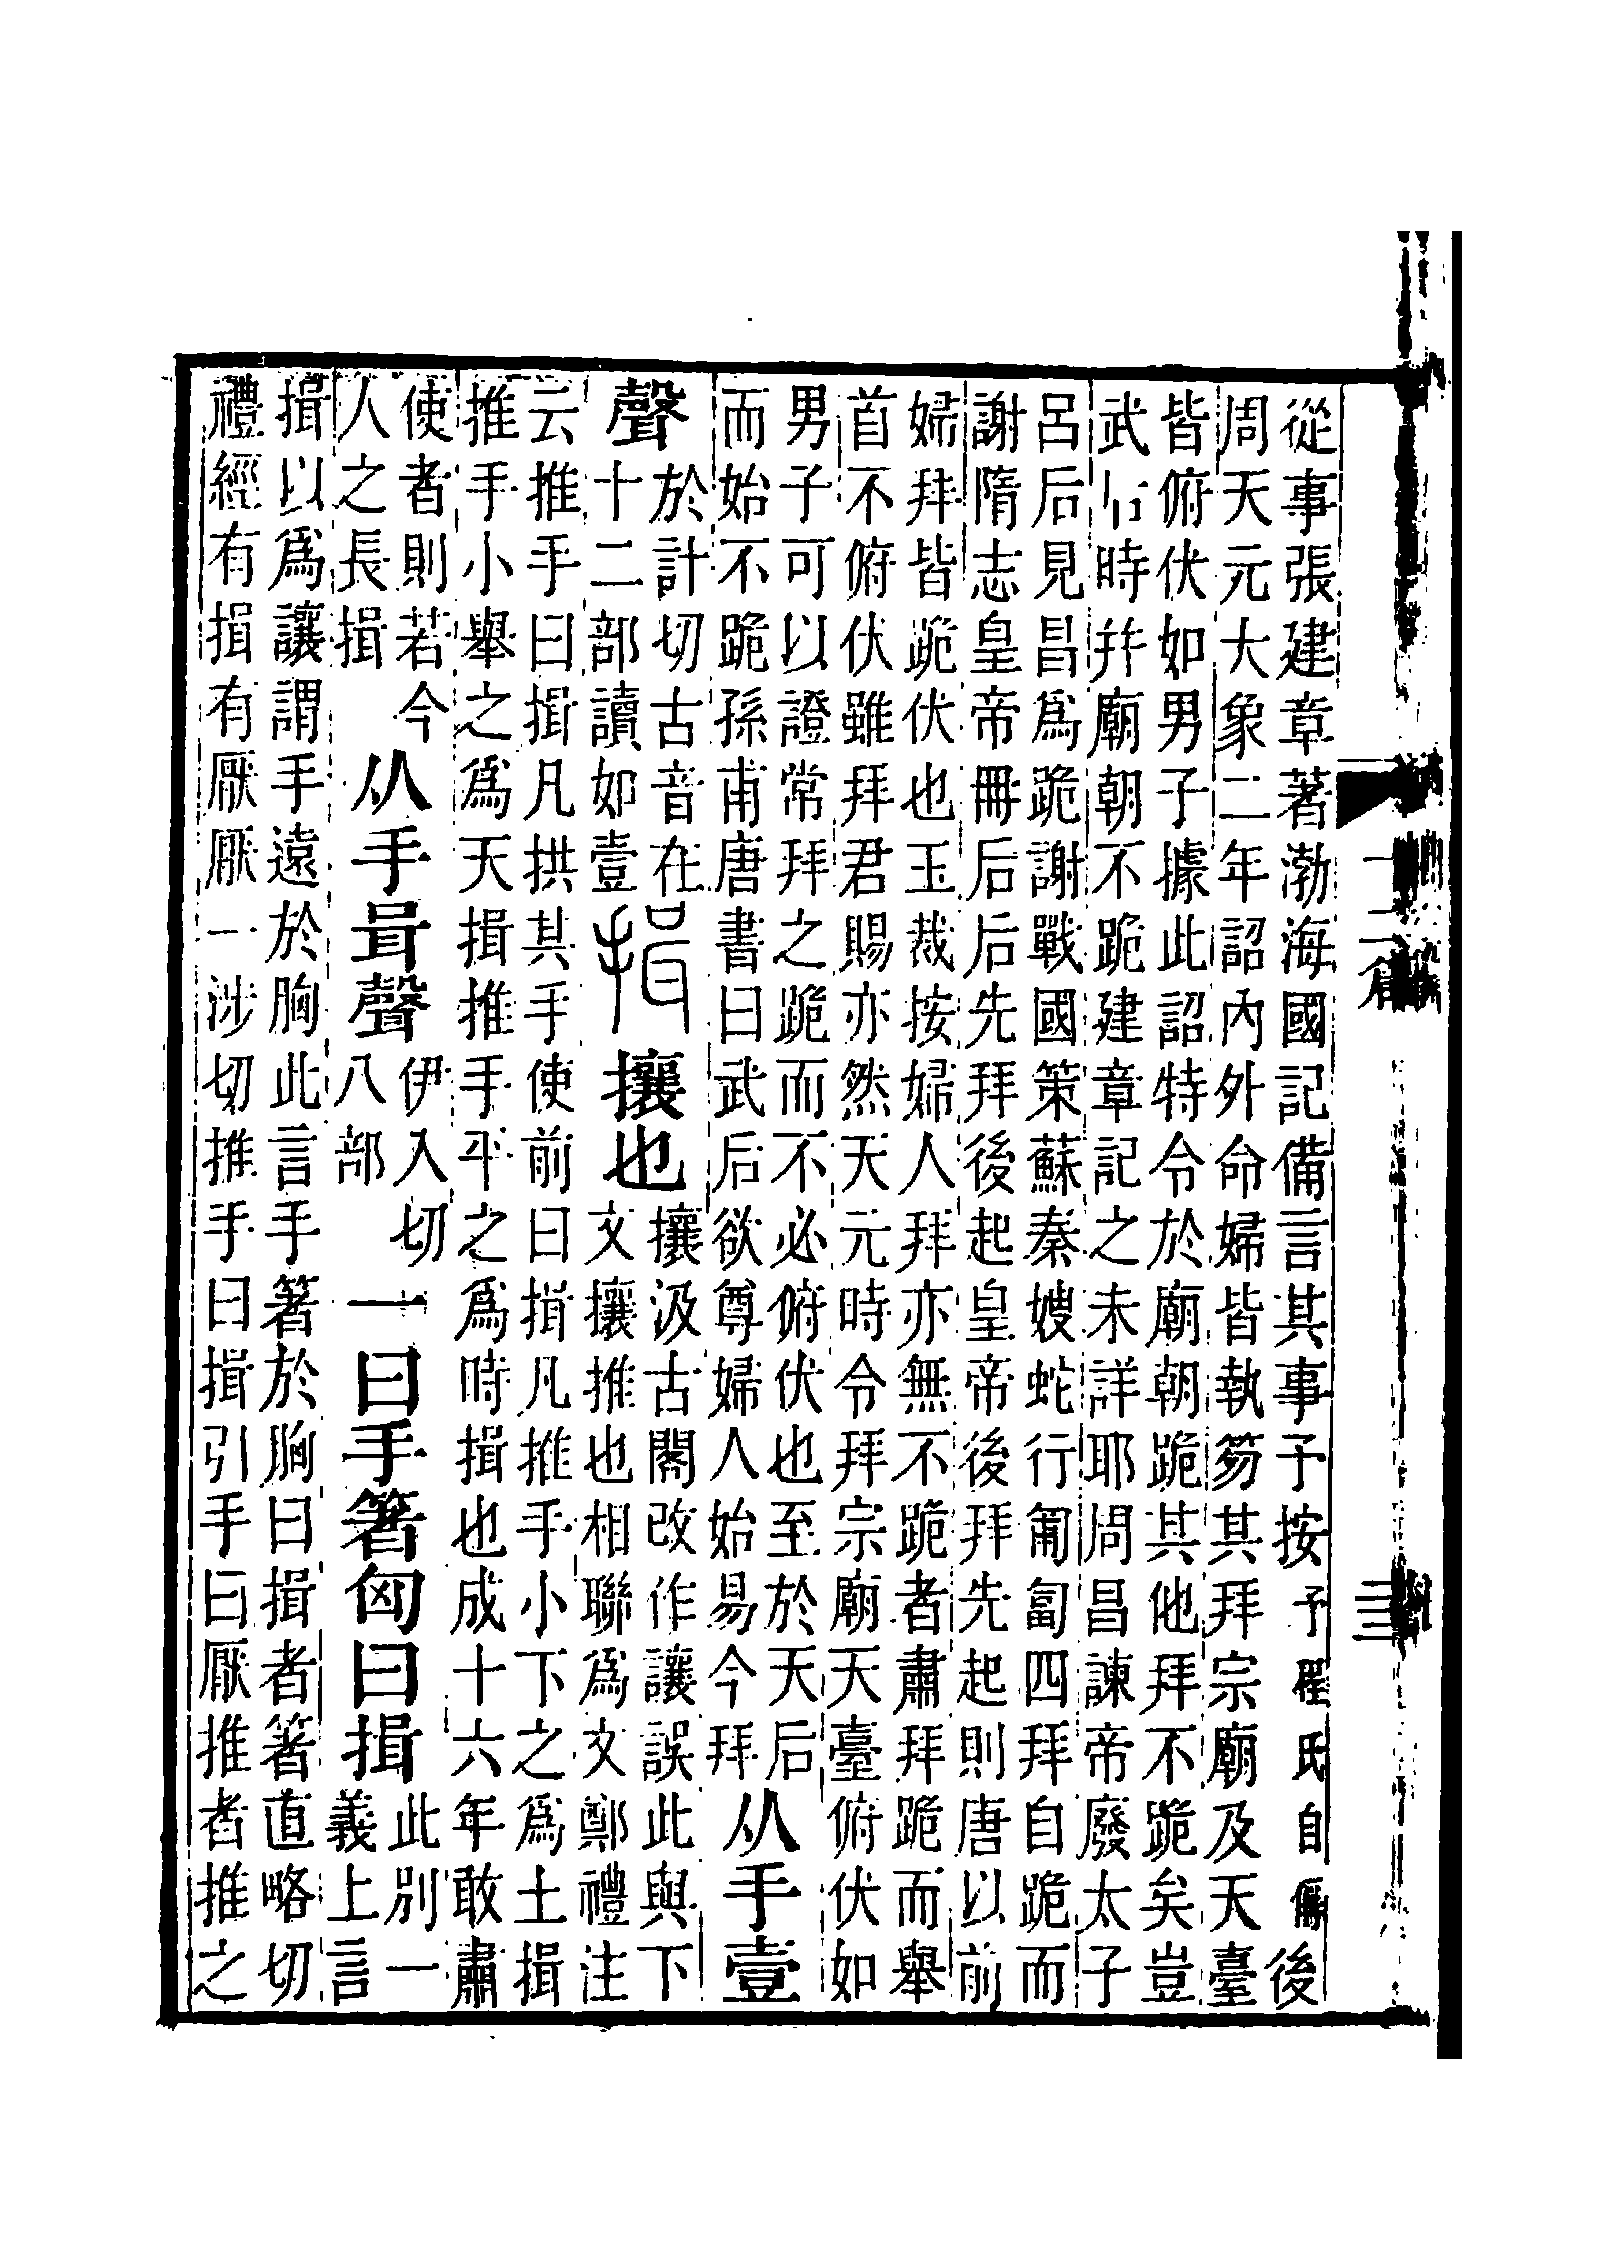 從事張建章著渤海國記備言其事予按予程氏自偁後
周天元大象二年詔內外命婦皆執笏其拜宗廟及天臺
皆俯伏如男子據此詔特令於廟朝跪其他拜不跪矣豈
武后時幷廟朝不跪建章記之未詳耶問昌諫帝廢太子
呂后見昌爲跪謝戰國策蘇秦嫂蛇行匍匐四拜自跪而
謝隋志皇帝冊后后先拜後起皇帝後拜先起則唐以前
婦拜皆跪伏也玉裁按婦人拜亦無不跪者肅拜跪而舉
首不俯伏雖拜君賜亦然天元時令拜宗廟天臺俯伏如
男子可以證常拜之跪而不必俯伏也至於天后
而始不跪孫甫唐書曰武后欲尊婦人始易今拜
从手壹
聲
於計切古音在
十二部讀如壹
揖
攘也
攘汲古閣改作讓誤此與下
文攘推也相聯爲文鄭禮注
云推手曰揖凡拱其手使前曰揖凡推手小下之爲土揖
推手小舉之爲天揖推手平之爲時揖也成十六年敢肅
使者則若今
人之長揖
从手咠聲
伊入切
八部
一曰手箸匈曰揖
此別一
義上言
揖以爲讓謂手遠於胸此言手箸於胸曰揖者箸直略切
禮經有揖有厭厭一涉切推手曰揖引手曰厭推者推之